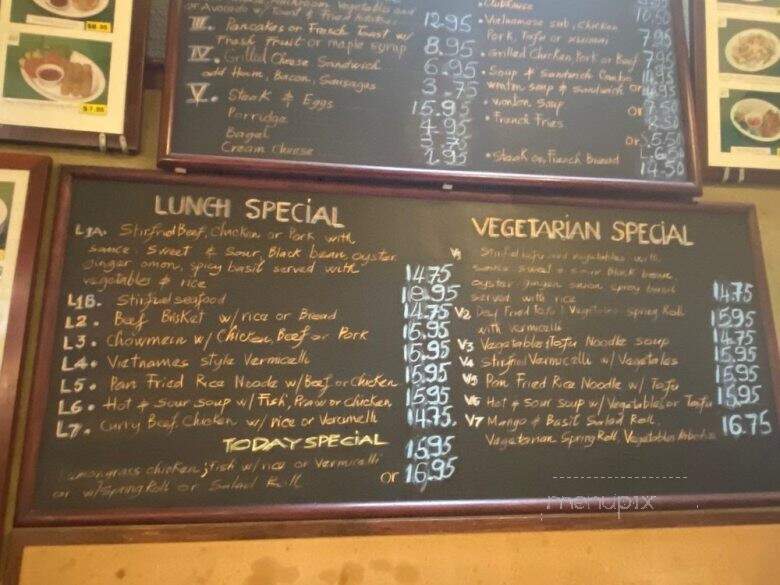 or Avocado w/ Toast & Fried
III. Pancakes or French Toast w/ 12.95
Fresh Fruit or maple syrup 8.95
IV. Grilled Cheese Sandwich 6.95
add Ham, Bacon, Sausages 3.75
V. Steak & Eggs 15.95
Porridge 4.95
Bagel 3.75
Cream Cheese 2.95
Clubhouse
Vietnamese sub, Chicken
Pork, Tofu or 7.95
Grilled Chicken Pork or Beef 7.95
Soup & Sandwich Combo
wonton soup & sandwich or
wonton soup 7.50
French Fries
or
Steak on French Bread 14.50
$8.95
$7.95
LUNCH SPECIAL
L1A. Stirfried Beef, Chicken or Pork with
sauce. Sweet & Sour, Black bean, oyster
ginger onion, spicy basil served with
vegetables & rice 14.75
L1B. Stirfried seafood 18.95
L2. Beef Brisket w/ rice or Bread 14.75
L3. Chowmein w/ Chicken, Beef or Pork 15.95
L4. Vietnames style Vermicelli 15.95
L5. Pan Fried Rice Noode w/ Beef or Chicken 15.95
L6. Hot & Sour soup w/ Fish, Prawn or Chicken 15.95
L7. Curry Beef, Chicken w/ rice or Vermicelli 14.75.
TODAY SPECIAL
Lemongrass chicken, fish w/ rice or Vermicelli 15.95
or w/ Spring Roll or Salad Roll or 16.95
VEGETARIAN SPECIAL
V1 Stirfried tofu and vegetables with
sauce sweet & sour Black bean,
oyster ginger onion spicy basil
served with rice 14.75
V2 Deep Fried Tofu & Vegetarian spring Roll 15.95
with Vermicelli 14.75
V3 Vegetables & Tofu Noodle soup 15.95
V4 Stirfried Vermicelli w/ Vegetales
V5 Pan Fried Rice Noodle w/ Tofu 15.95
V6 Hot & Sour soup w/ Vegetables or Tofu 15.95
V7 Mango & Basil Salad Roll, 16.75
Vegetarian Spring Roll, Vegetables
menupix